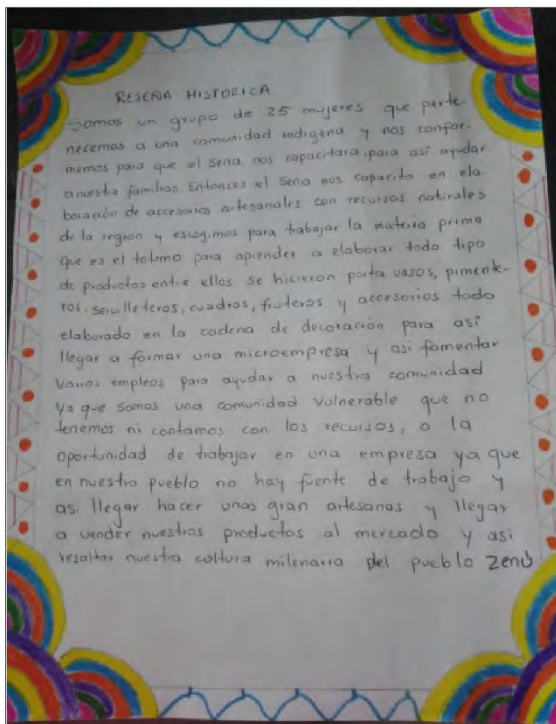 RESEÑA HISTORICA
Somos un grupo de 25 mujeres que perte-
necemos a una comunidad indigena y nos confor-
memos para que el Sena nos capacitara, para asi ayudar
a nuestra familias. Entonces el Sena nos capacito en ela-
boración de accesorios artesanales con recursos naturales
de la region y escogimos para trabajar la materia prima
que es el totumo para aprender a elaborar todo tipo
de productos entre ellos se hicieron porta vasos, pimente-
ros, servilleteros, cuadros, fruteros y accesorios todo
elaborado en la cadena de decoración para asi
llegar a formar una microempresa y asi fomentar
varios empleos para ayudar a nuestra comunidad
Ya que somos una comunidad vulnerable que no
tenemos ni contamos con los recursos, o la
oportunidad de trabajar en una empresa ya que
en nuestro pueblo no hay fuente de trabajo y
asi llegar hacer unas gran artesanas y llegar
a vender nuestros productos al mercado y asi
resaltar nuestra cultura milenaria del pueblo Zenú